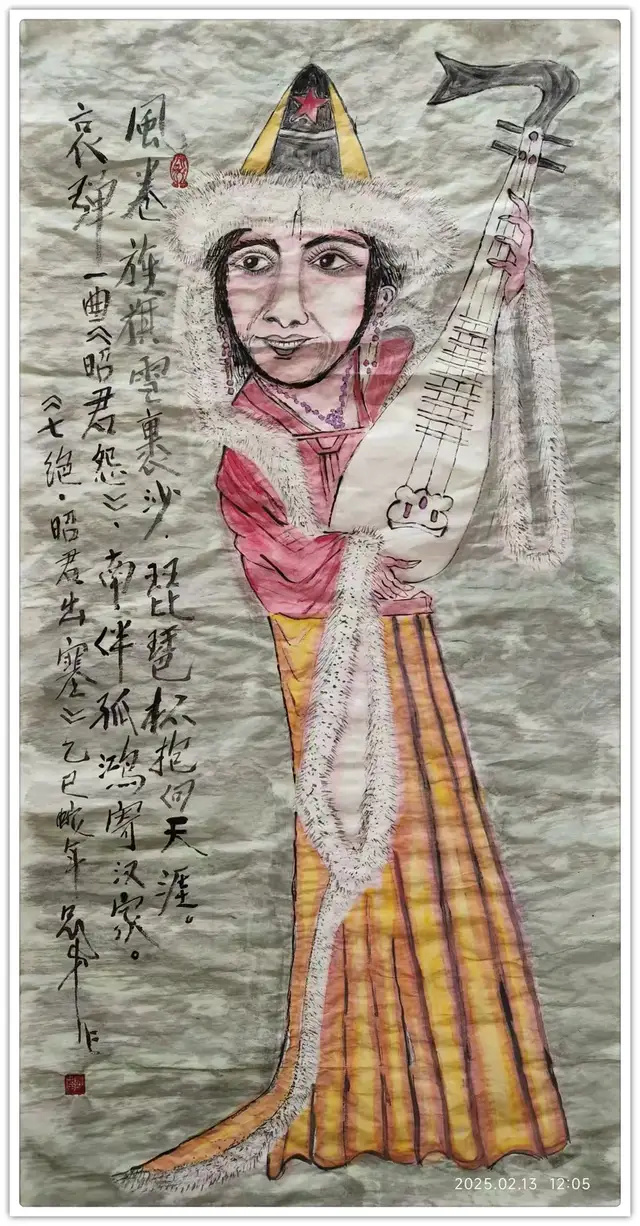 風卷旌旗雪裹沙.琵琶抱向天涯。
哀弹一曲《昭君怨》、南伴孤鸿寄汉家。
《七绝·昭君出塞》乙巳蛇年 作
2025.02.13 12:05